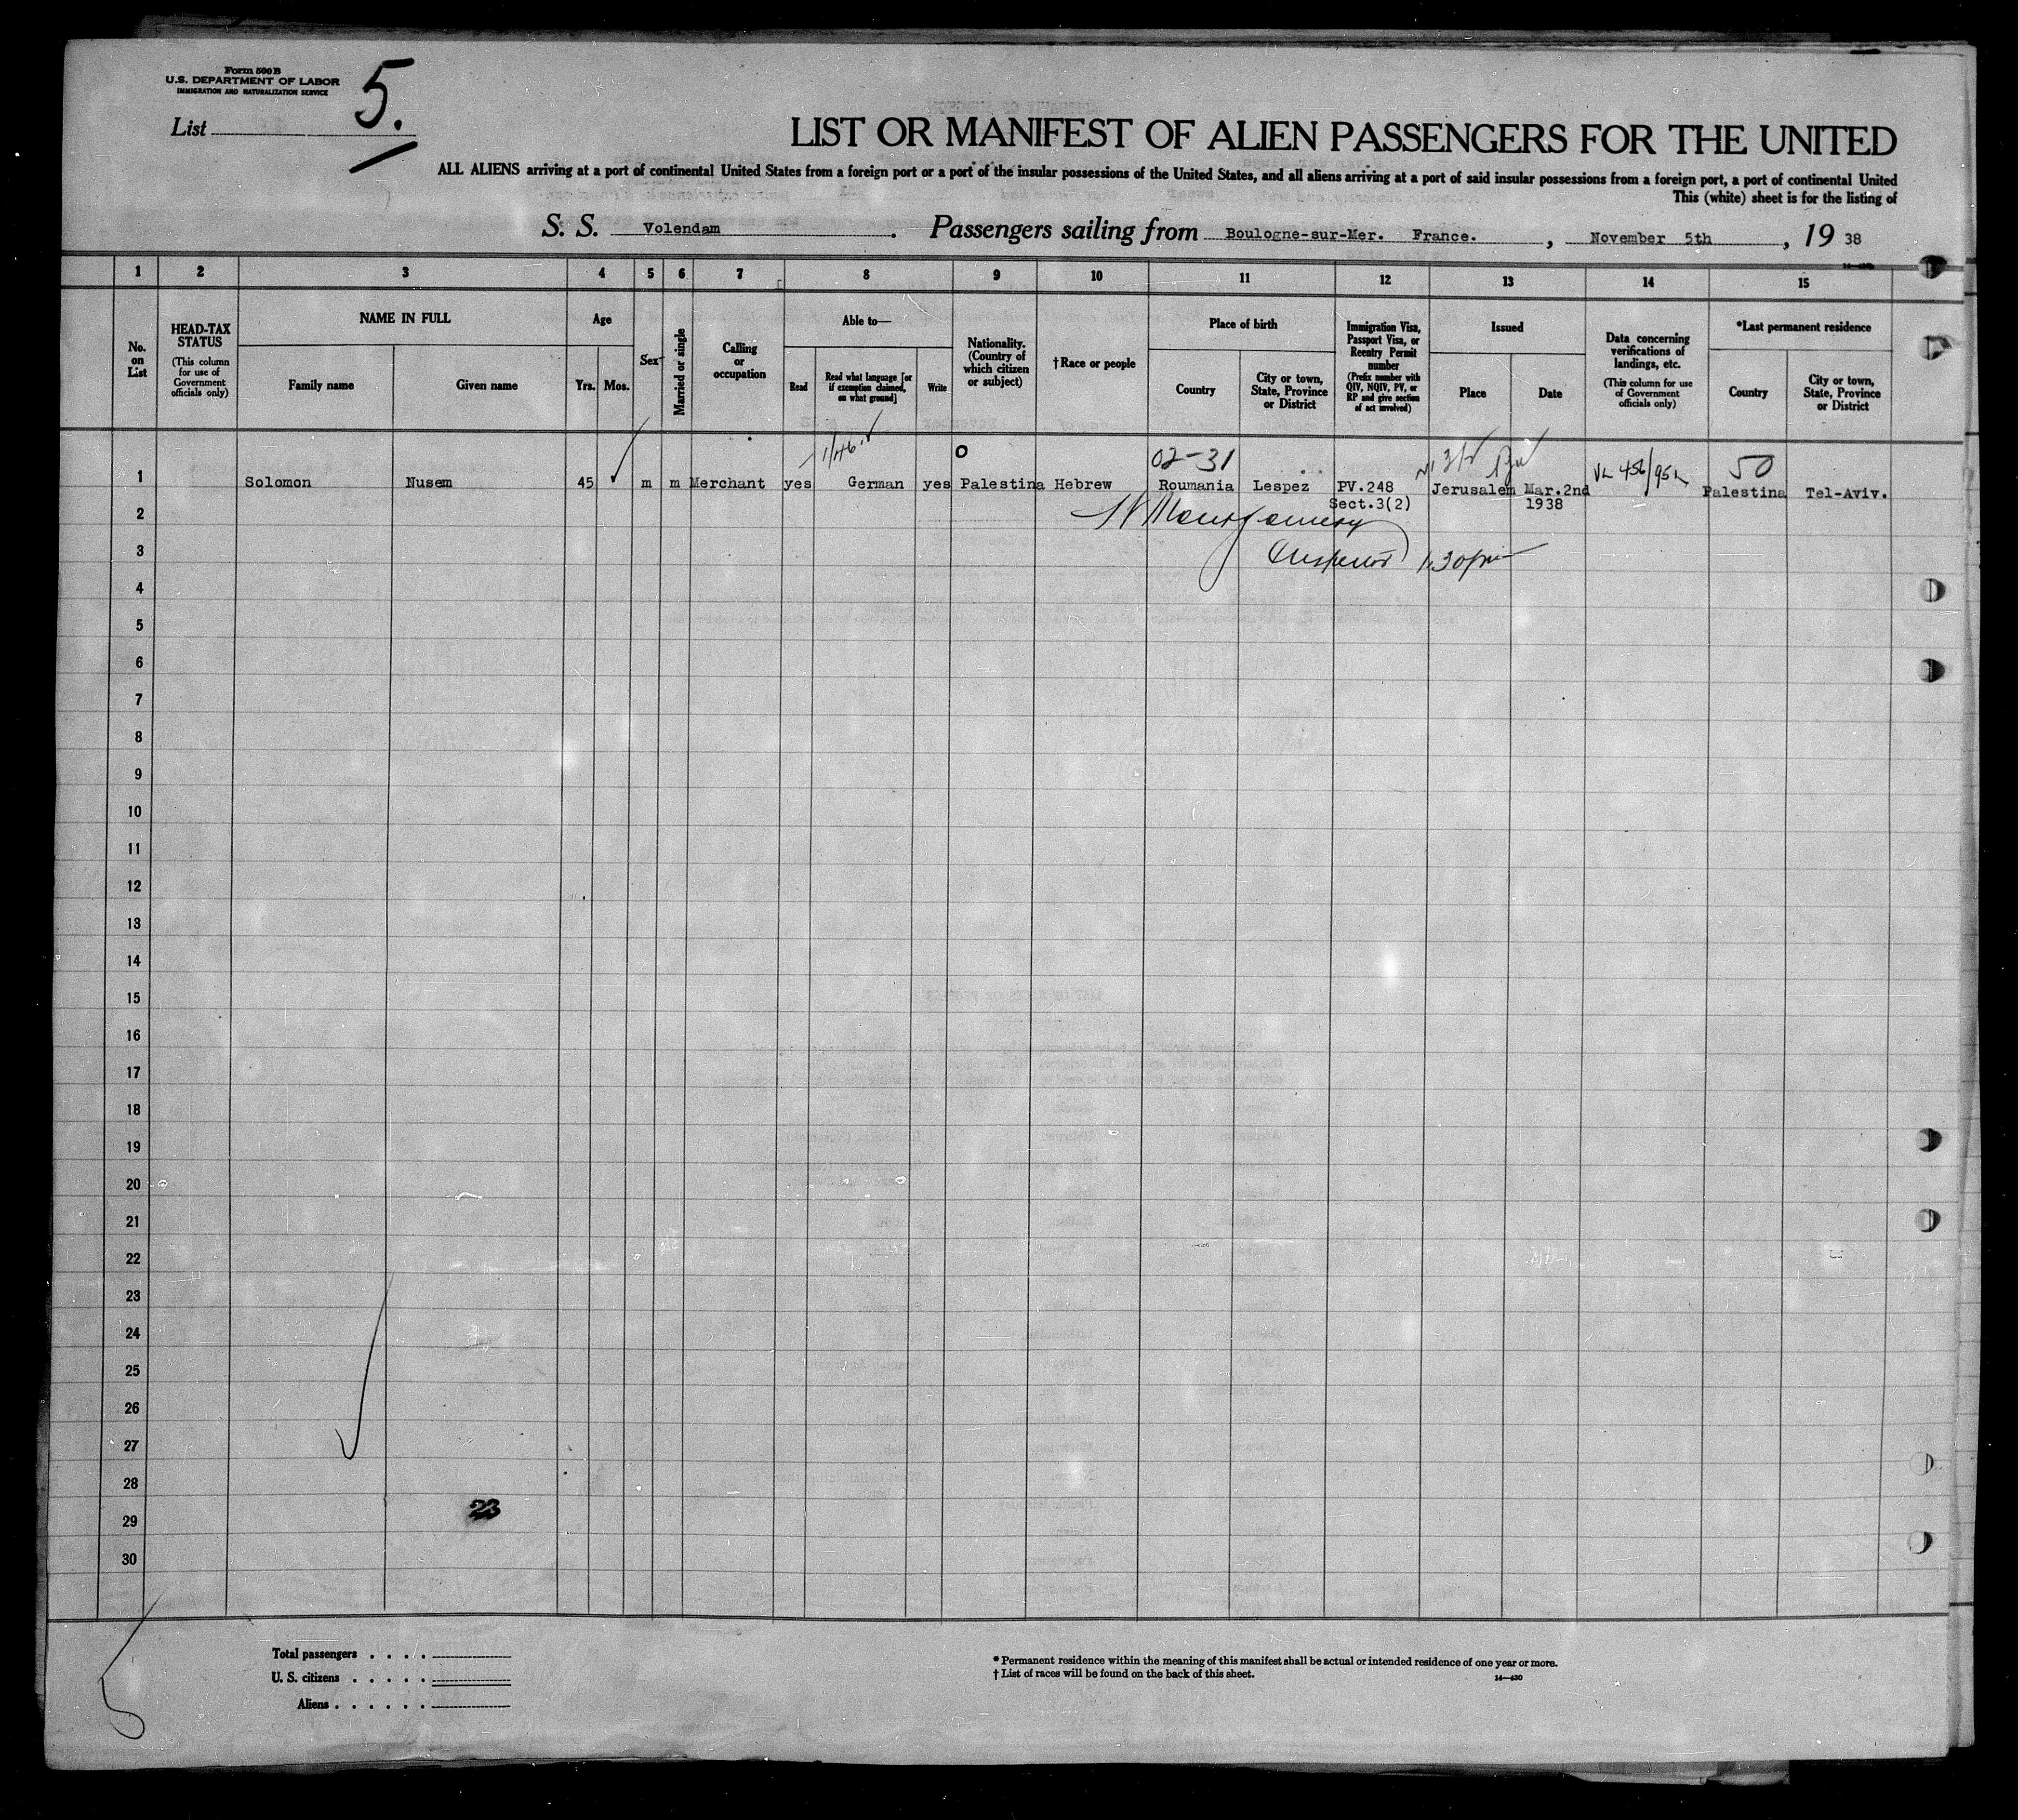 Form 500 B
U.S. DEPARTMENT OF LABOR
IMMIGRATION AND NATURALIZATION SERVICE
List 5.
LIST OR MANIFEST OF ALIEN PASSENGERS FOR THE UNITED
ALL ALIENS arriving at a port of continental United States from a foreign port or a port of the insular possessions of the United States, and all aliens arriving at a port of said insular possessions from a foreign port, a port of continental United
This (white) sheet is for the listing of
S. S. Volendam. Passengers sailing from Boulogne-sur-Mer. France., November 5th, 19 38
14—430
1 2 3 4 5 6 7 8 9 10 11 12 13 14 15
No. on List
HEAD-TAX STATUS
(This column for use of Government officials only)
NAME IN FULL
Family name
Given name
Age
Yrs. Mos.
Sex
Married or single
Calling or occupation
Able to—
Read
Read what language [or if exemption claimed, on what ground]
Write
Nationality. (Country of which citizen or subject)
†Race or people
Place of birth
Country
City or town, State, Province or District
Immigration Visa, Passport Visa, or Reentry Permit number
(Prefix number with QIV, NQIV, PV, or RP and give section of act involved)
Issued
Place
Date
Data concerning verifications of landings, etc.
(This column for use of Government officials only)
*Last permanent residence
Country
City or town, State, Province or District
1/46 0 02-31 VL 456/952 50
1 Solomon Nusem 45 m m Merchant yes German yes Palestina Hebrew Roumania Lespez PV.248 Jerusalem Mar.2nd Palestina Tel-Aviv.
Sect.3(2) 1938
2 Montgomery
3 Inspector 1.30pm
4
5
6
7
8
9
10
11
12
13
14
15
16
17
18
19
20
21
22
23
24
25
26
27
28
23
29
30
Total passengers . . . .
U. S. citizens . . . . .
Aliens . . . . . .
* Permanent residence within the meaning of this manifest shall be actual or intended residence of one year or more.
† List of races will be found on the back of this sheet.
14—430